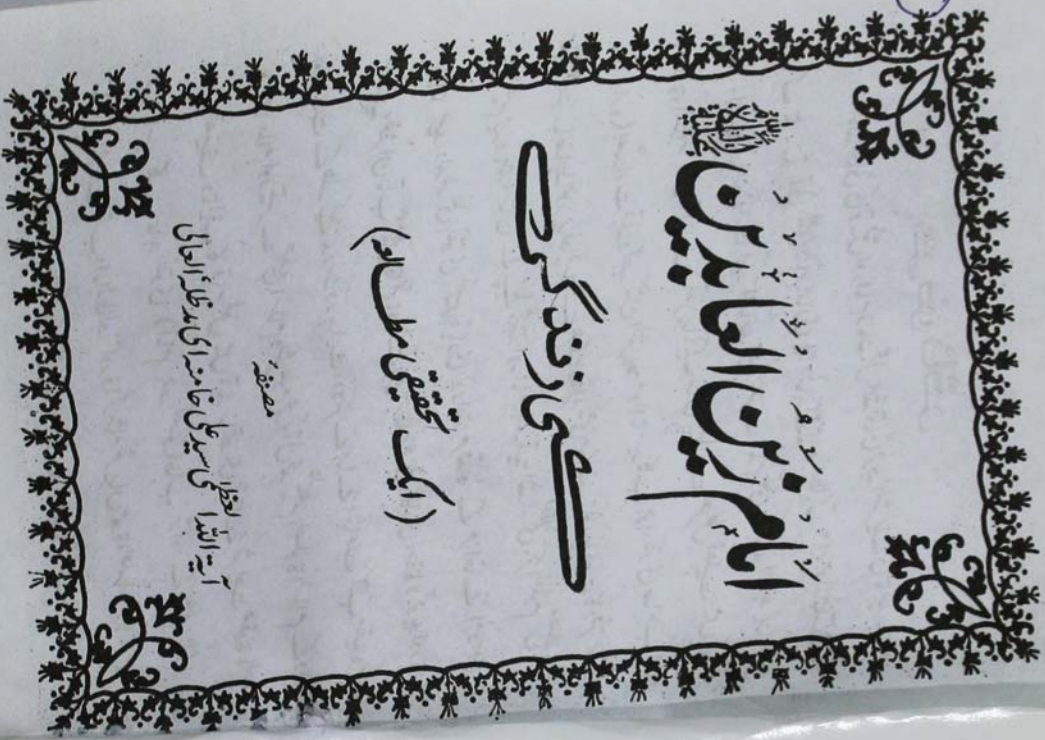 امام زین العابدین
کی زندگی
(ایک تحقیقی مطالعہ)
مصنفہ
آیۃ اللہ العظمٰی سید علی خامنہ ای مدظلہ العالی